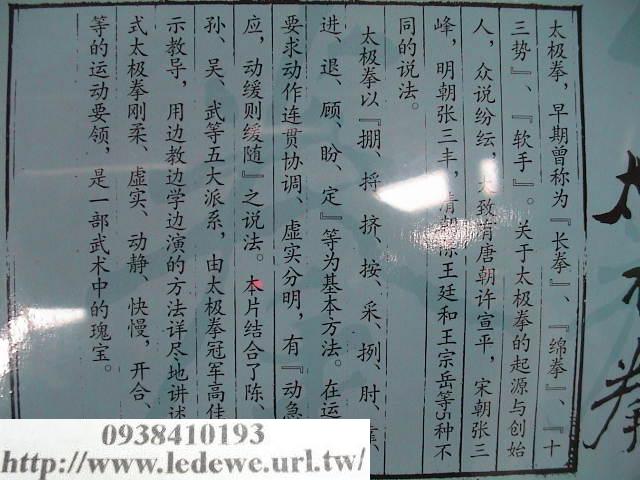 太极拳，早期曾称为『长拳』、『绵拳』、『十
三势』、『软手』。关于太极拳的起源与创始
人，众说纷纭，大致有唐朝许宣平，宋朝张三
峰，明朝张三丰，清朝陈王廷和王宗岳等5种不
同的说法。
太极拳以『掤、捋、挤、按、采、挒、肘、靠、
进、退、顾、盼、定』等为基本方法。在运
要求动作连贯协调、虚实分明，有『动急
应，动缓则缓随』之说法。本片结合了陈、
孙、吴、武等五大派系，由太极拳冠军高佳
示教导，用边教边学边演的方法详尽地讲述
式太极拳刚柔、虚实、动静、快慢，开合、
等的运动要领，是一部武术中的瑰宝。
0938410193
http://www.ledewe.url.tw/